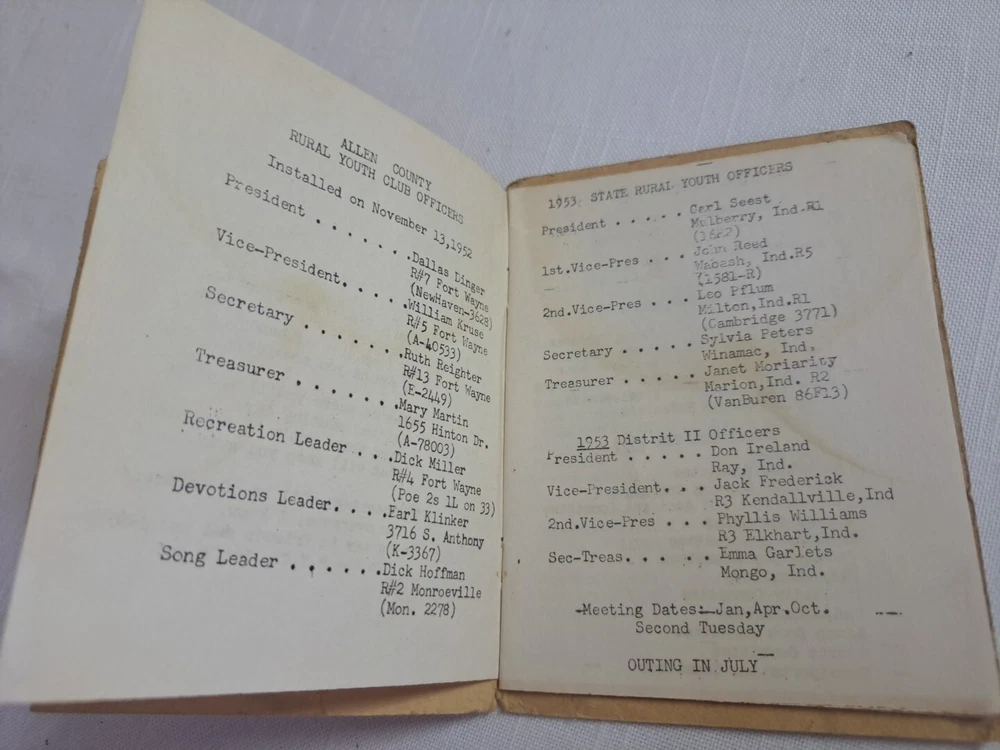 ALLEN COUNTY
RURAL YOUTH CLUB OFFICERS
Installed on November 13,1952
President . . . . . . .Dallas Dinger
R#7 Fort Wayne
(NewHaven-3628)
Vice-President. . . . .William Kruse
R#5 Fort Wayne
(A-40533)
Secretary . . . . . . .Ruth Reighter
R#13 Fort Wayne
(E-2449)
Treasurer . . . . . . .Mary Martin
1655 Hinton Dr.
(A-78003)
Recreation Leader . . .Dick Miller
R#4 Fort Wayne
(Poe 2s 1L on 33)
Devotions Leader. . . .Earl Klinker
3716 S. Anthony
(K-3367)
Song Leader . . . . . .Dick Hoffman
R#2 Monroeville
(Mon. 2278)
1953 STATE RURAL YOUTH OFFICERS
President . . . . . Carl Seest
Mulberry, Ind.R1
1st.Vice-Pres . . . John Reed
Wabash, Ind.R5
(1581-R)
2nd.Vice-Pres . . . Leo Pflum
Milton,Ind.R1
(Cambridge 3771)
Secretary . . . . . Sylvia Peters
Winamac, Ind.
Treasurer . . . . . Janet Moriarity
Marion,Ind. R2
(VanBuren 86F13)
1953 Distrit II Officers
President . . . . . Don Ireland
Ray, Ind.
Vice-President. . . Jack Frederick
R3 Kendallville,Ind
2nd.Vice-Pres . . . Phyllis Williams
R3 Elkhart,Ind.
Sec-Treas. . . . . Emma Garlets
Mongo, Ind.
-Meeting Dates:-Jan,Apr.Oct.
Second Tuesday
OUTING IN JULY